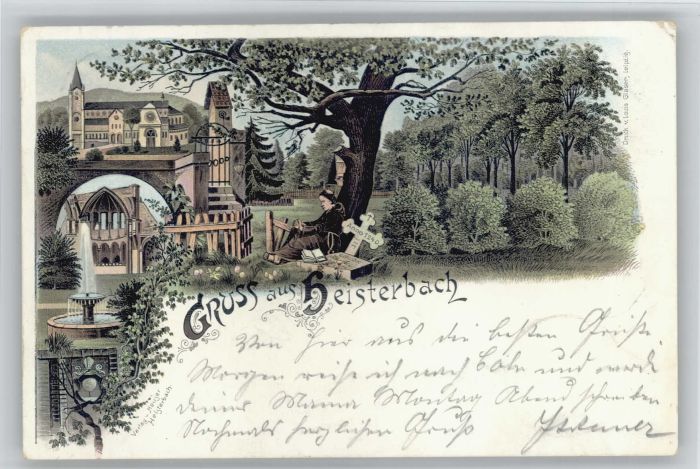 Druck v. Louis Glaser, Leipzig.
Gruss aus Heisterbach
Von hier aus die besten Grüße
Morgen reise ich nach Cöln und werde
deiner Mama Montag Abend schreiben
Nochmals herzlichen Gruß
Verlag v.
Heisterbach.